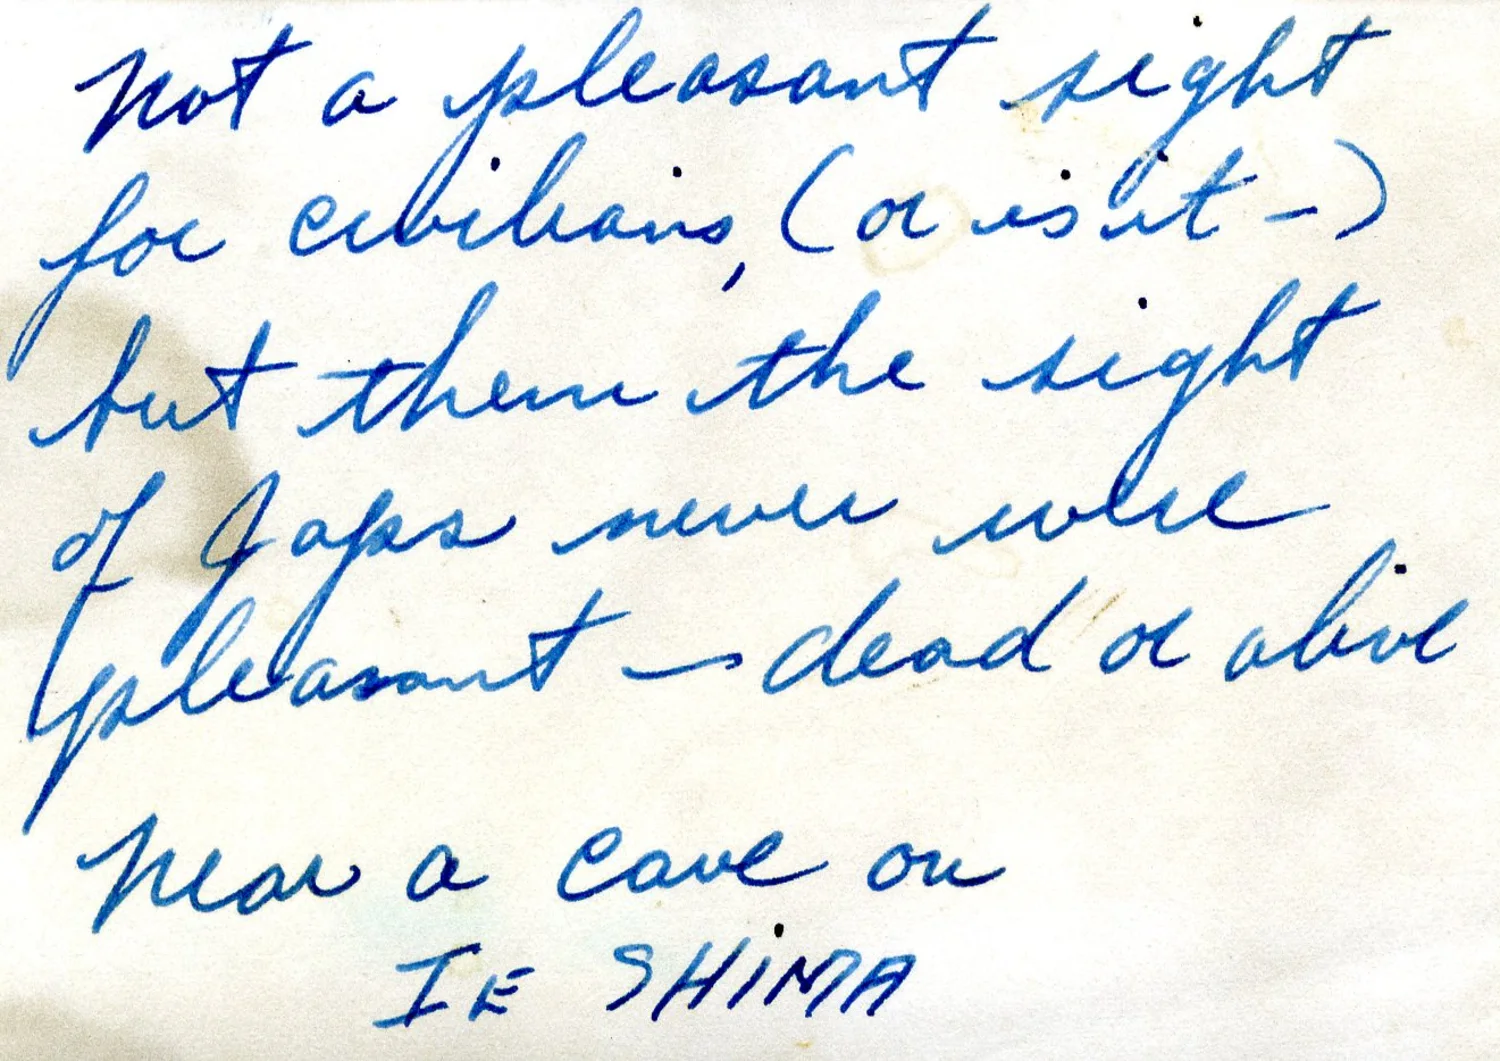 Not a pleasant sight
for civilians, (or is it -)
but them the sight
of Japs never were
pleasant — dead or alive
Near a cave on
IE SHiMA